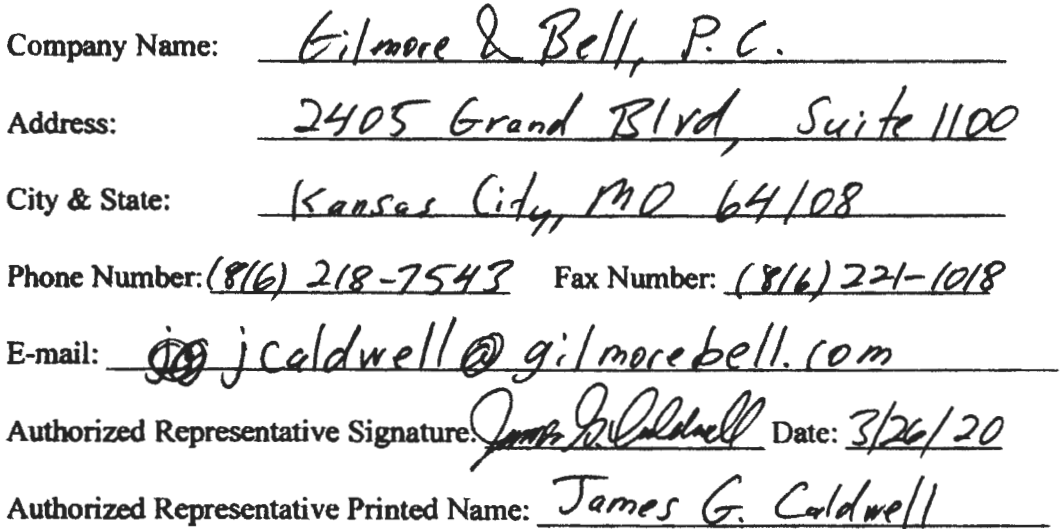 Company Name: Gilmore & Bell, P.C.
Address: 2405 Grand Blvd, Suite 1100
City & State: Kansas City, MO 64108
Phone Number: (816) 218-7543 Fax Number: (816) 221-1018
E-mail: jcaldwell@gilmorebell.com
Authorized Representative Signature: James G. Caldwell Date: 3/26/20
Authorized Representative Printed Name: James G. Caldwell